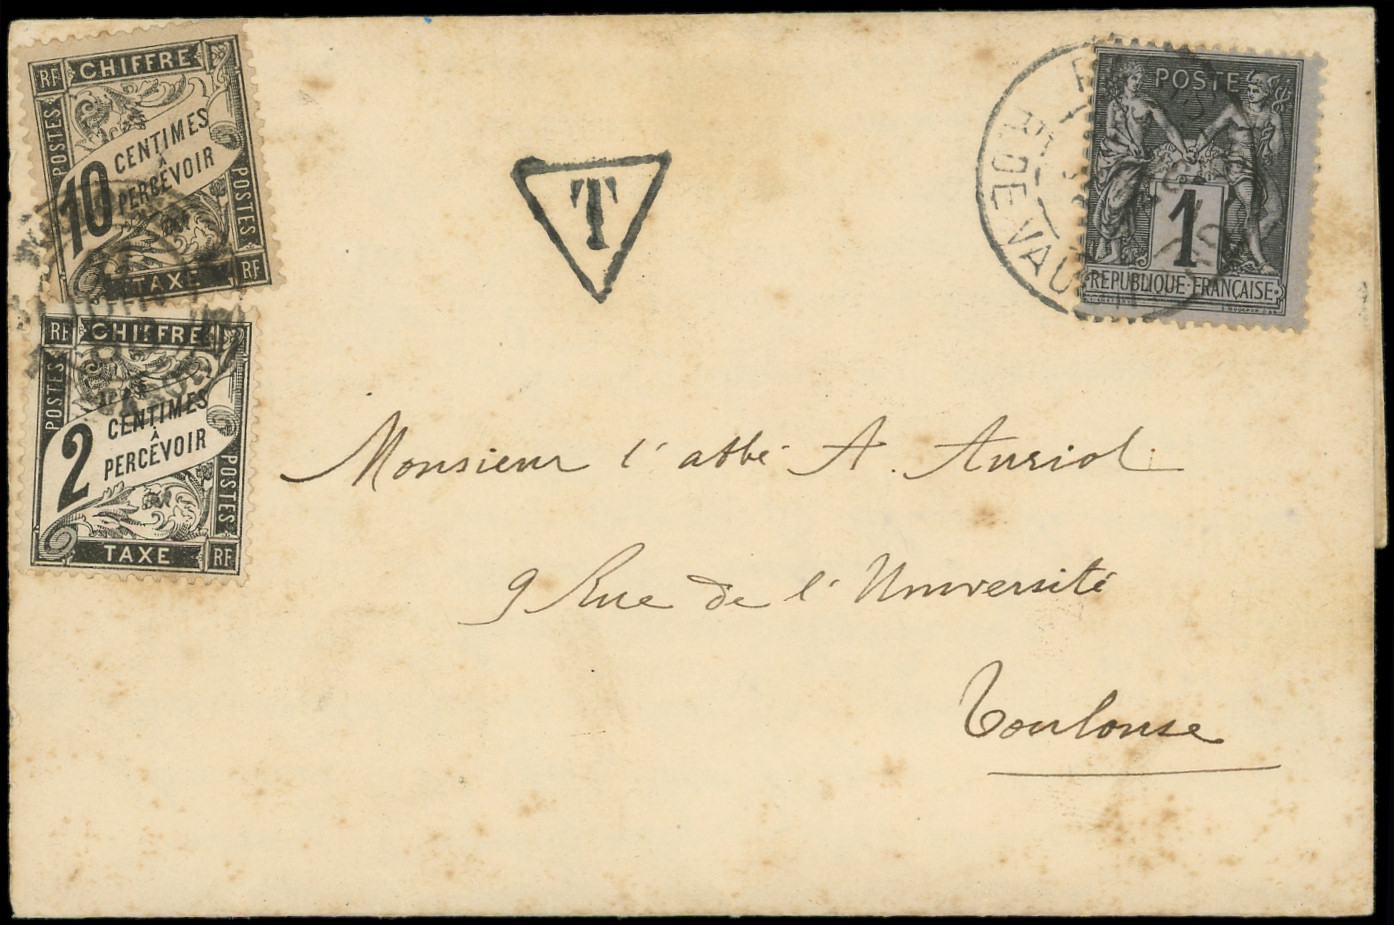 RF CHIFFRE
POSTES
10 CENTIMES
À
PERCEVOIR
POSTES
TAXE RF
RF CHIFFRE
POSTES
2 CENTIMES
À
PERCEVOIR
POSTES
TAXE RF
T
R. DE VAU
POSTE
1
REPUBLIQUE FRANÇAISE
Monsieur l'abbé A. Auriol
9 Rue de l'Université
Toulouse